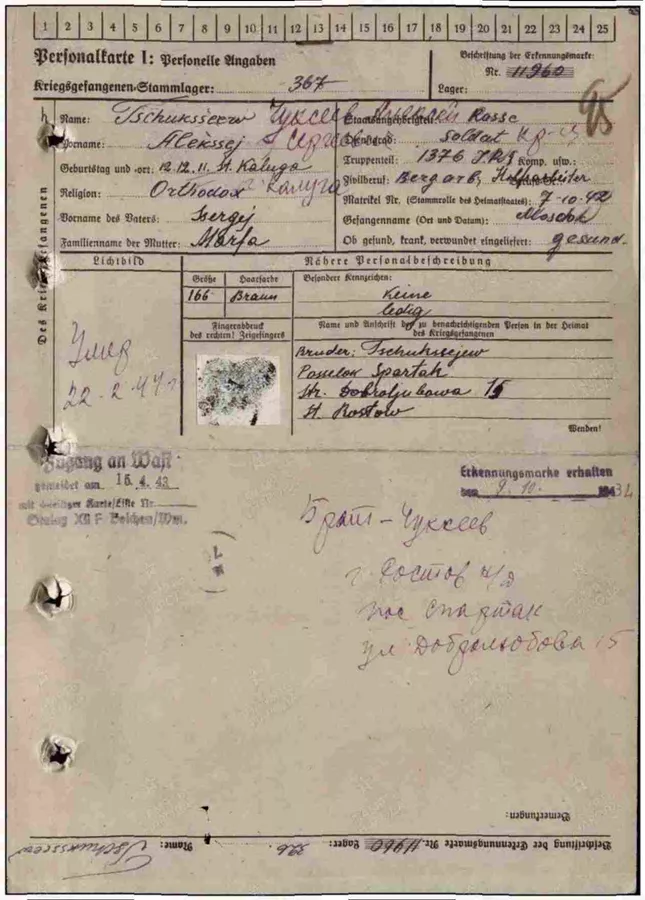 1 2 3 4 5 6 7 8 9 10 11 12 13 14 15 16 17 18 19 20 21 22 23 24 25
Personalkarte I: Personelle Angaben
Kriegsgefangenen-Stammlager: 367
Beschriftung der Erkennungsmarke:
Nr. 11960
Lager:
95
Des Kriegsgefangenen
Name: Tschuksseew Чуксеев Алексей
Vorname: Alekssej
Geburtstag und -ort: 12.12.11. St. Kaluga
Religion: Orthodox г. Калуга
Vorname des Vaters: Ssergej
Familienname der Mutter: Marfa
Staatsangehörigkeit: Russe
Dienstgrad: Soldat кр-ц
Truppenteil: 1376 Komp. usw.:
Zivilberuf: Bergarb, Hilfsarbeiter
Matrikel Nr. (Stammrolle des Heimatstaates) 7-10-42
Gefangenname (Ort und Datum): Mosdok
Ob gesund, krank, verwundet eingeliefert: gesund.
Lichtbild
Nähere Personalbeschreibung
Größe Haarfarbe
166 Braun
Besondere Kennzeichen:
Keine
ledig
Fingerabdruck
des rechten! Zeigefingers
Name und Anschrift der zu benachrichtigenden Person in der Heimat
des Kriegsgefangenen
Bruder: Tschukssejew
Posselok Spartak
Str. Dobroljubowa 15
St. Rostow
Wenden!
Умер
22-2-44
Zugang an Wast
gemeldet am 15.4.43
mit Karte/Liste Nr.
Stalag XII F Bolchen/Wm.
Erkennungsmarke erhalten
9.10. 194
Брат - Чуксеев
г. Ростов н/Д
пос Спартак
ул Добролюбова 15
Bemerkungen:
Beschriftung der Erkennungsmarke Nr. 11960 Lager: Name: Tschuksseew